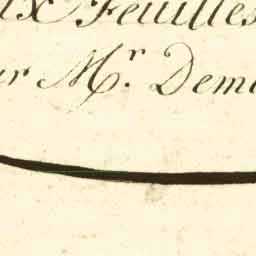 ux Feuilles
ur Mr. Dem